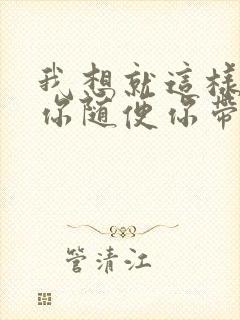 我想就這樣
你隨便你帶
管清江